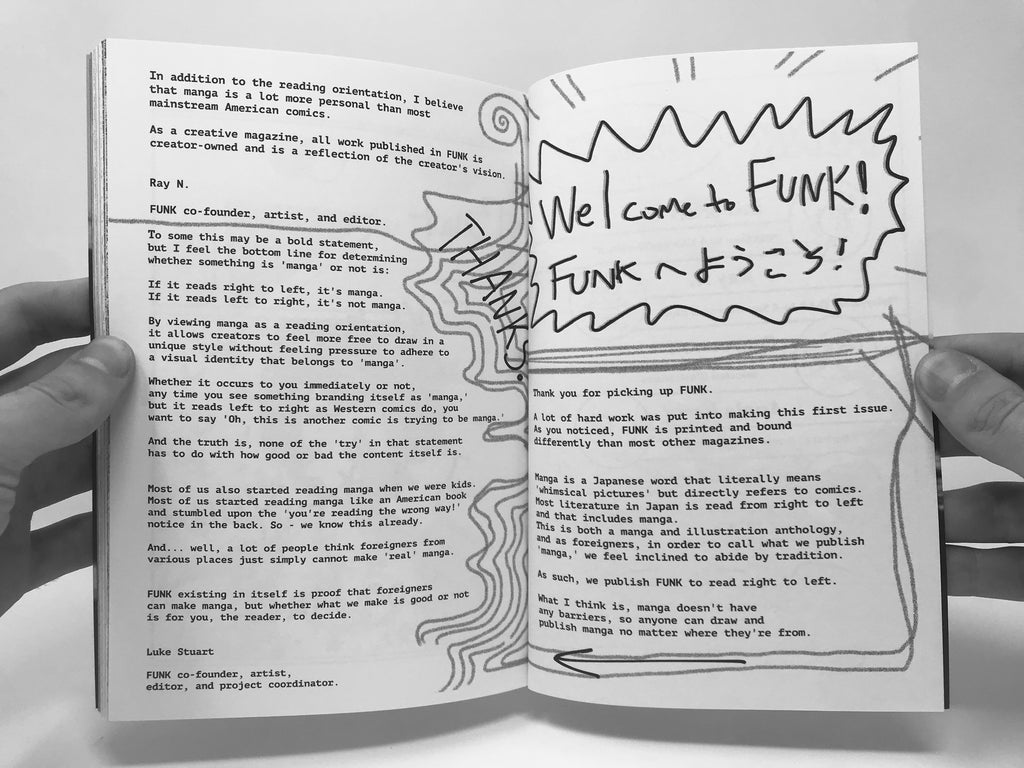 Welcome to FUNK!
FUNKへようこそ!
Thank you for picking up FUNK.
A lot of hard work was put into making this first issue.
As you noticed, FUNK is printed and bound
differently than most other magazines.
Manga is a Japanese word that literally means
'whimsical pictures' but directly refers to comics.
Most literature in Japan is read from right to left
and that includes manga.
This is both a manga and illustration anthology,
and as foreigners, in order to call what we publish
'manga,' we feel inclined to abide by tradition.
As such, we publish FUNK to read right to left.
What I think is, manga doesn't have
any barriers, so anyone can draw and
publish manga no matter where they're from.
In addition to the reading orientation, I believe
that manga is a lot more personal than most
mainstream American comics.
As a creative magazine, all work published in FUNK is
creator-owned and is a reflection of the creator's vision.
Ray N.
FUNK co-founder, artist, and editor.
To some this may be a bold statement,
but I feel the bottom line for determining
whether something is 'manga' or not is:
If it reads right to left, it's manga.
If it reads left to right, it's not manga.
By viewing manga as a reading orientation,
it allows creators to feel more free to draw in a
unique style without feeling pressure to adhere to
a visual identity that belongs to 'manga'.
Whether it occurs to you immediately or not,
any time you see something branding itself as 'manga,'
but it reads left to right as Western comics do, you
want to say 'Oh, this is another comic is trying to be manga.'
And the truth is, none of the 'try' in that statement
has to do with how good or bad the content itself is.
Most of us also started reading manga when we were kids.
Most of us started reading manga like an American book
and stumbled upon the 'you're reading the wrong way!'
notice in the back. So - we know this already.
And... well, a lot of people think foreigners from
various places just simply cannot make 'real' manga.
FUNK existing in itself is proof that foreigners
can make manga, but whether what we make is good or not
is for you, the reader, to decide.
Luke Stuart
FUNK co-founder, artist,
editor, and project coordinator.
THANKS.